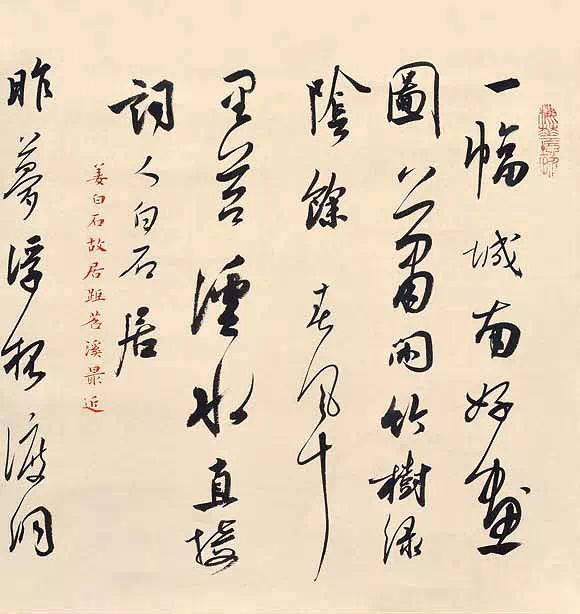 一幅城南好畫
圖蕭閒竹樹綠
陰餘春風十
里苕溪水直接
詞人白石居
姜白石故居距苕溪最近
昨夢浮渡洞